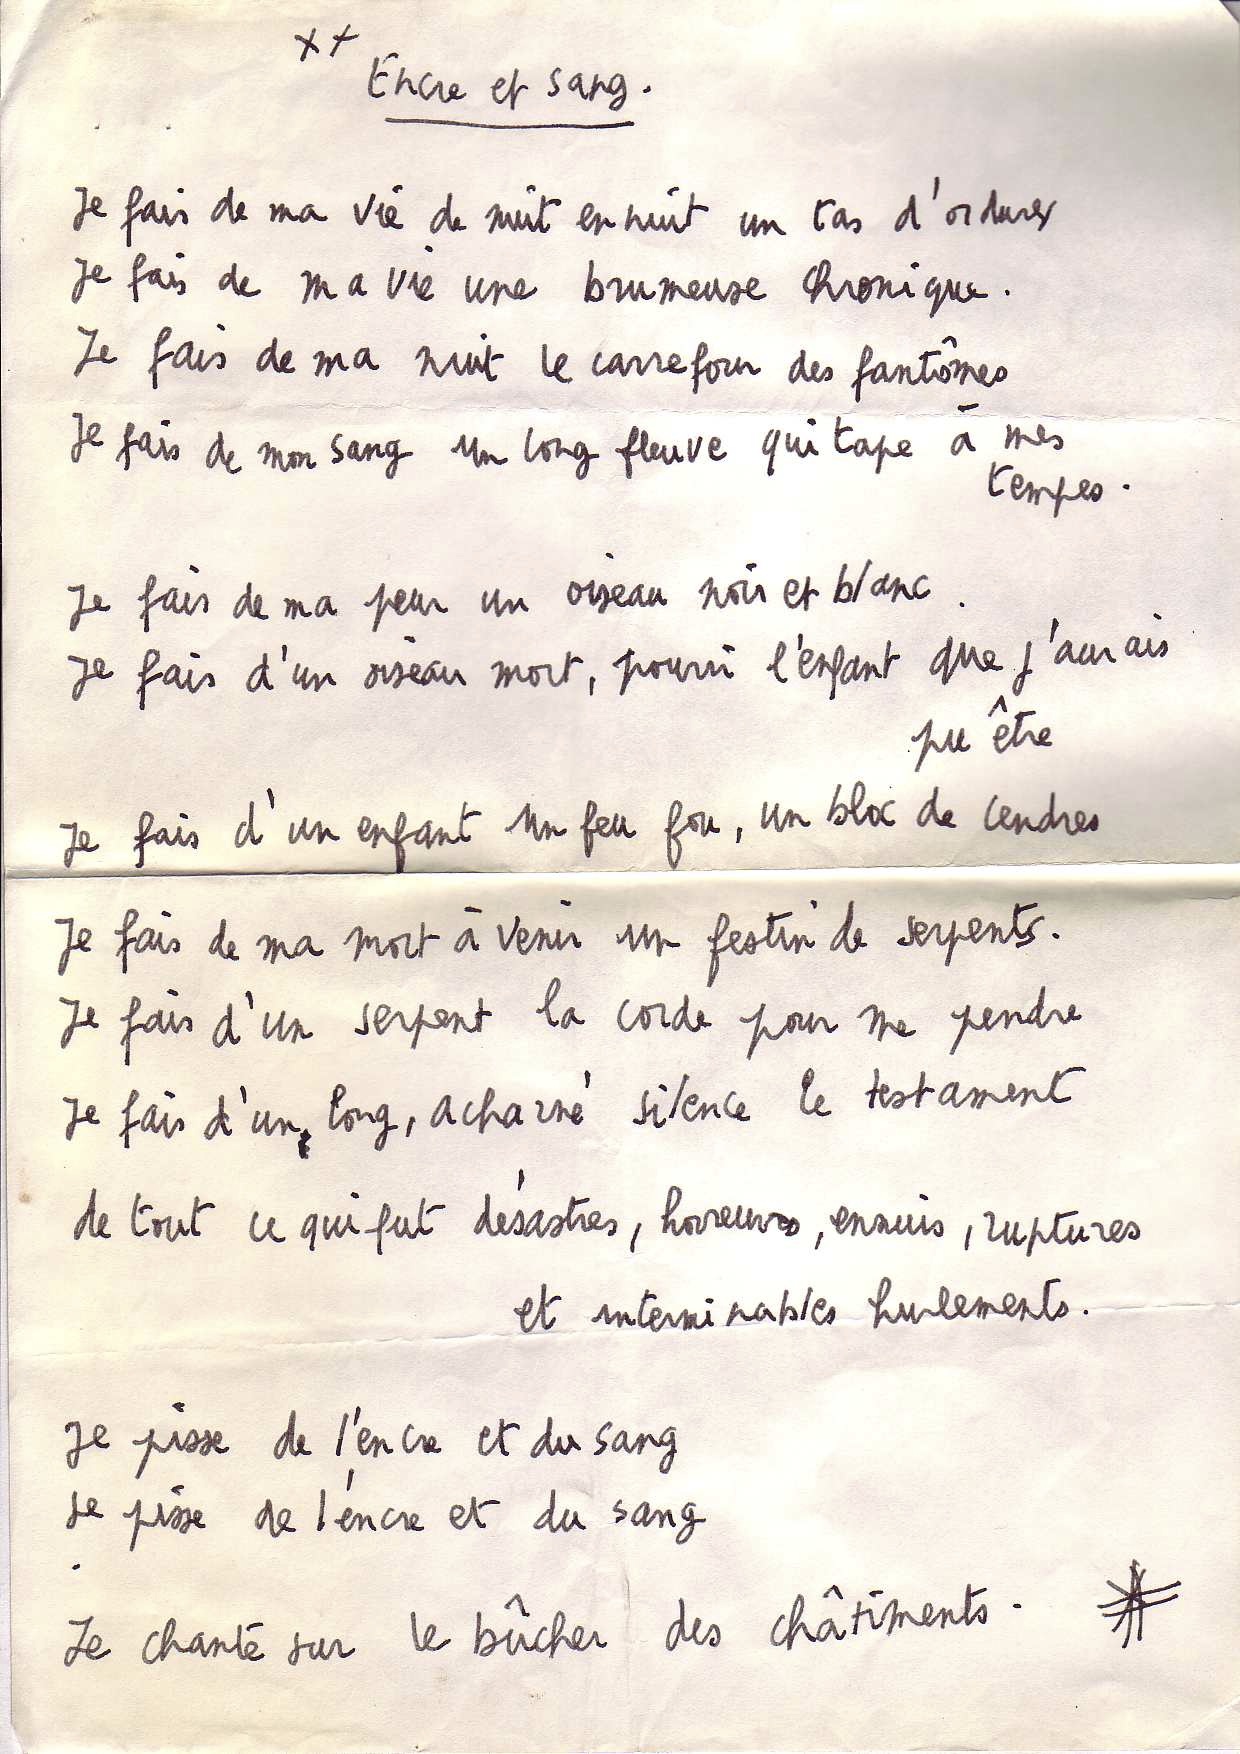 ++
Encre et sang.
Je fais de ma vie de nuit en nuit un tas d'ordures
Je fais de ma vie une brumeuse chronique.
Je fais de ma nuit le carrefour des fantômes
Je fais de mon sang un long fleuve qui tape à mes
tempes.
Je fais de ma peur un oiseau noir et blanc.
Je fais d'un oiseau mort, pourri l'enfant que j'aurais
pu être
Je fais d'un enfant un feu fou, un bloc de cendres
Je fais de ma mort à venir un festin de serpents.
Je fais d'un serpent la corde pour me pendre
Je fais d'un long, acharné silence le testament
de tout ce qui fut désastres, horreurs, ennuis, ruptures
et interminables hurlements.
Je pisse de l'encre et du sang
Je pisse de l'encre et du sang
Je chante sur le bûcher des châtiments.